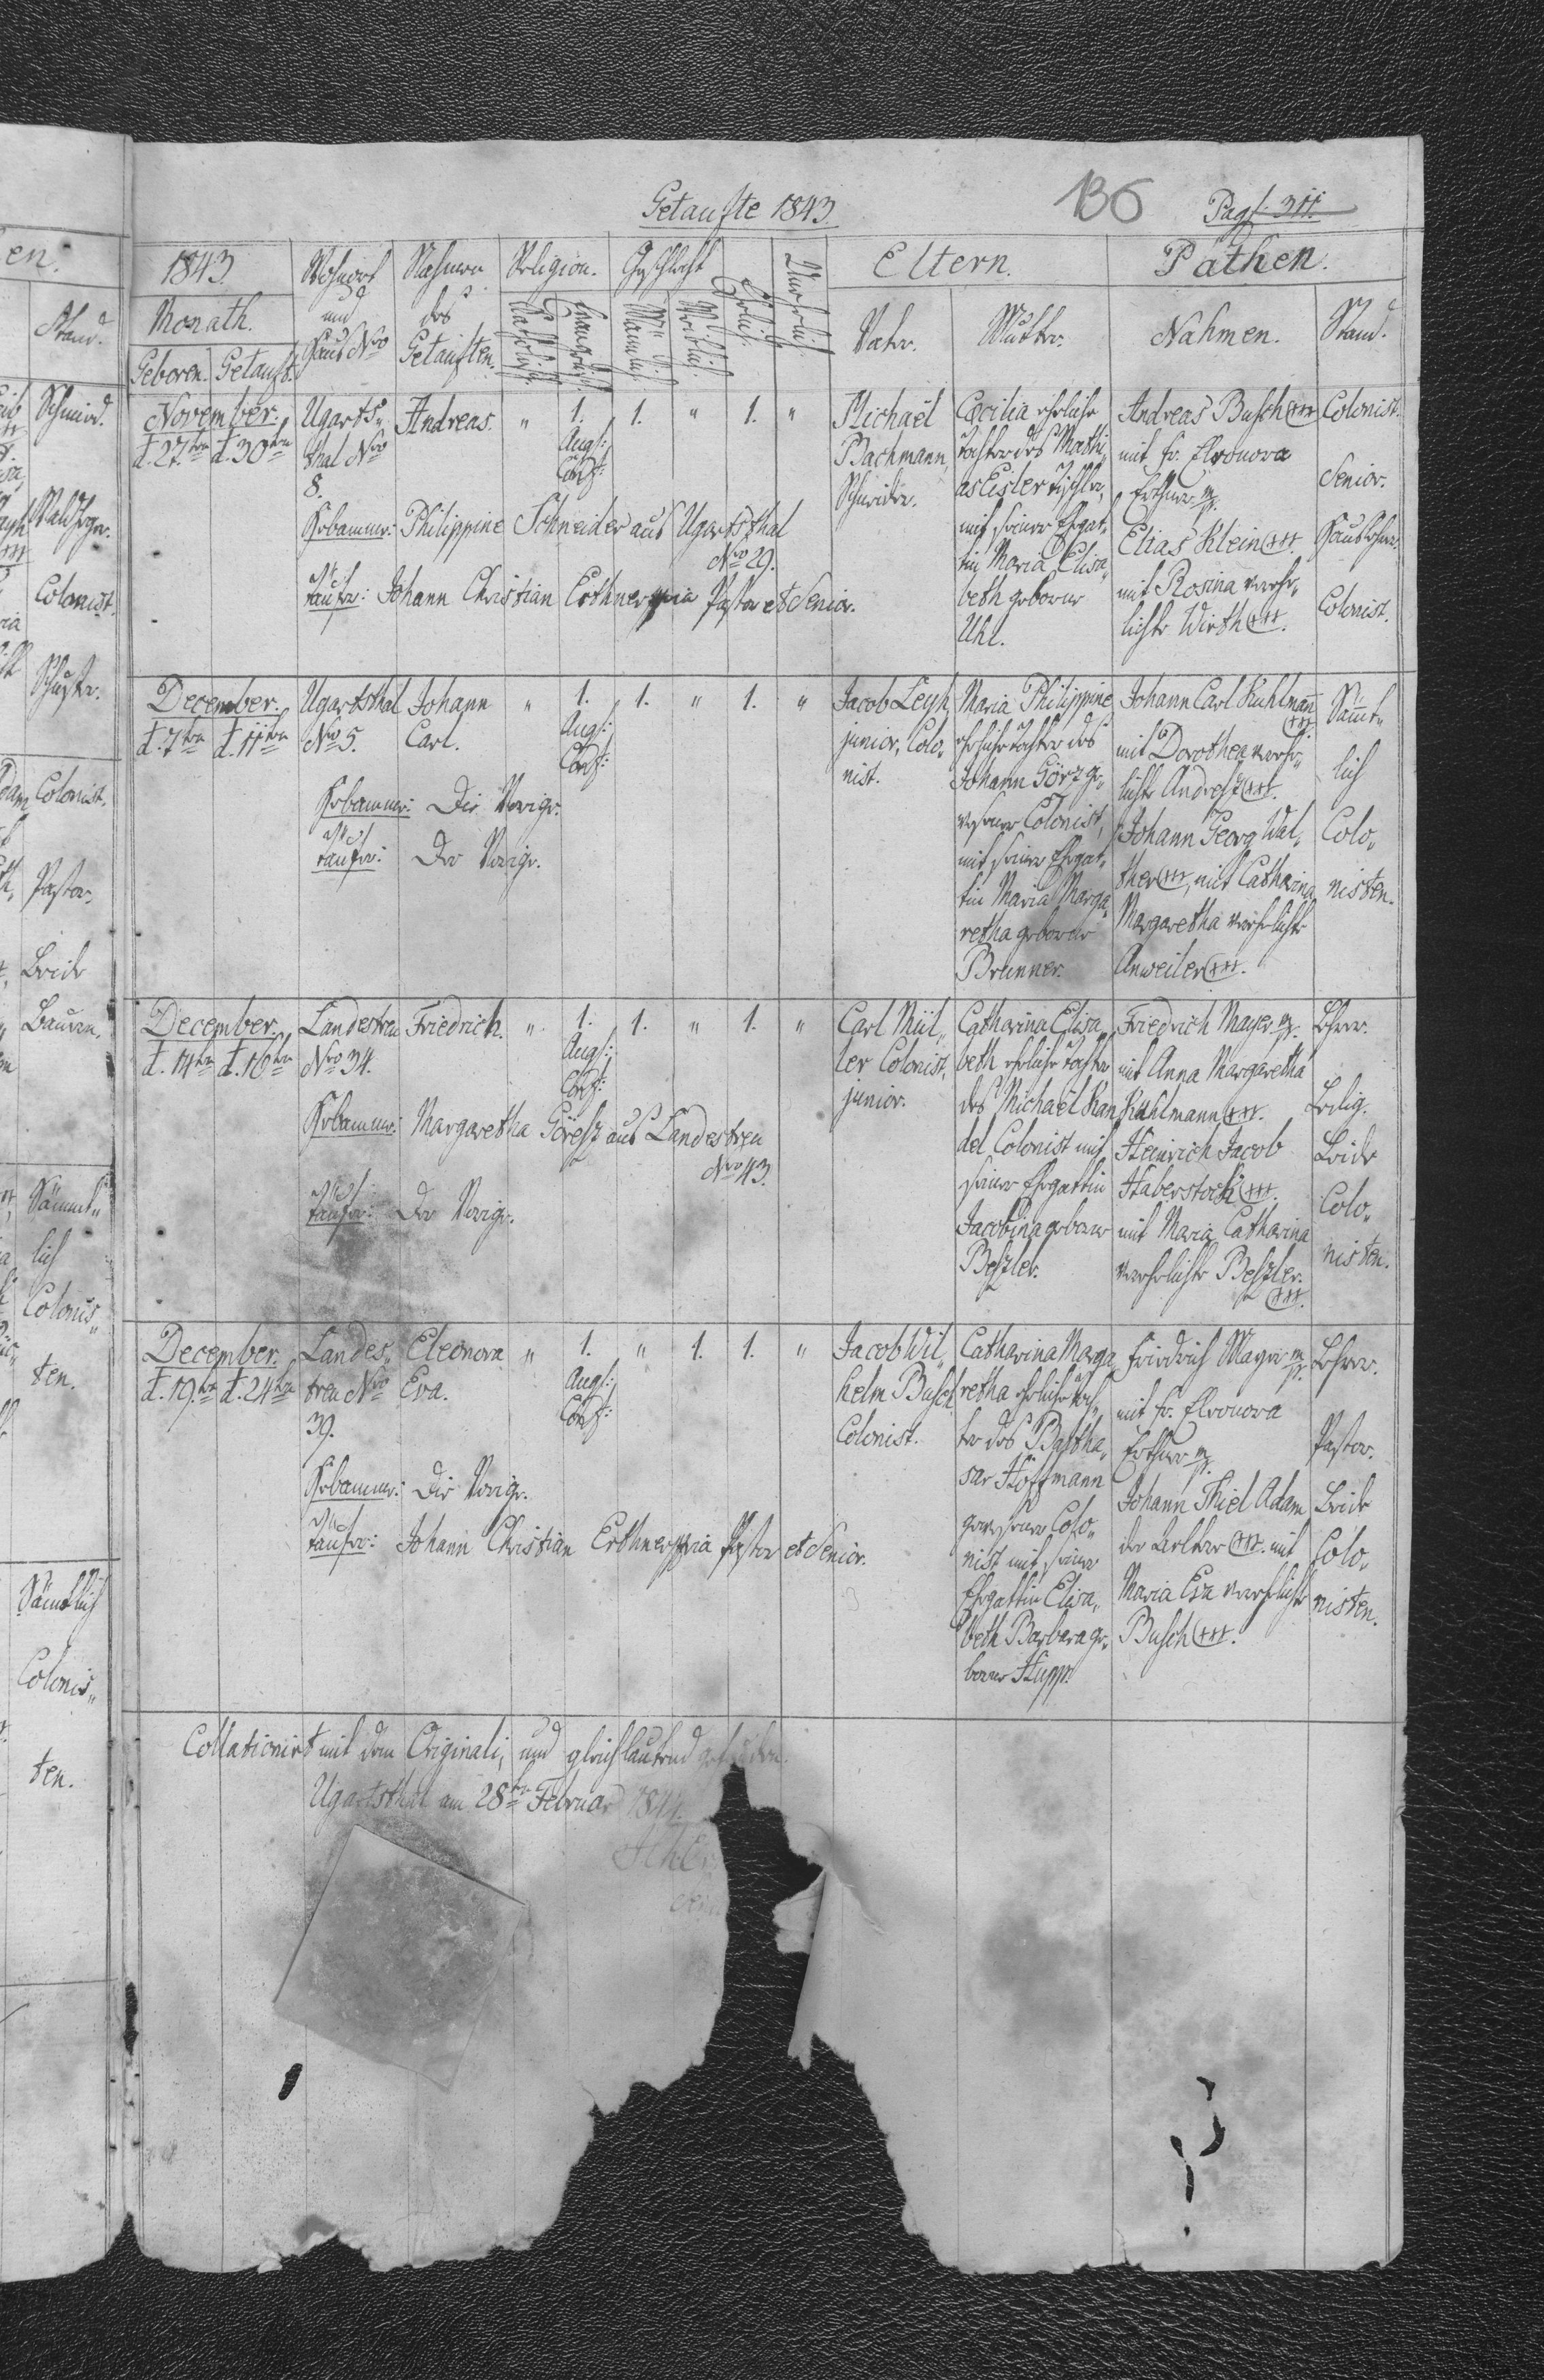 Getaufte 1843.
136
Pag: 311.
1843.
Monath.
Geboren. Getauft.
Wohnort
und
Haus Nro
Nahmen
des
Getauften.
Religion.
Katholisch
Evangelisch
Geschlecht
Männlich
Weiblich
Ehelich.
Unehelich.
Eltern.
Vater.
Mutter.
Pathen.
Nahmen.
Stand.
November.
d. 27ten d. 30ten
Ugarts„
thal Nro
8.
Andreas.
" 1. 1. " 1. "
Augs:
Conf:
Michaël
Bachmann,
Schneider.
Cæcilia eheliche
Tochter des Mathi„
as Eisler Tischler,
mit seiner Ehegat„
tin Maria Elisa„
beth geborne
Uhl.
Andreas Busch +++
mit Fr. Eleonora
Erthner
Elias Klein +++.
mit Rosina vereh„
lichte Wirth +++.
Colonist.
Senior.
Colonist.
Hebamme: Philippine Schneider aus Ugartsthal
Nro 29.
Täufer: Johann Christian Erthner Pastor et Senior.
December.
d. 7ten d. 11ten
Ugartsthal
Nro 5.
Johann
Carl.
" 1. 1. " 1. "
Augs:
Conf:
Jacob Leyh
junior, Colo„
nist.
Maria Philippine
eheliche Tochter des
Johann Görz ge„
wesener Colonist,
mit seiner Ehegat„
tin Maria Marga„
retha geborne
Brunner.
Johann Carl Kuhlmañ
+++
mit Dorothea vereh„
lichte Andresz +++.
Johann Georg Wal„
ther +++, mit Catharina
Margaretha verehlichte
Anweiler +++.
Säm̃t„
lich
Colo„
nisten.
Hebamme: Die Vorige.
Täufer: Der Vorige.
December.
d. 14ten d. 16ten
Landestreu
Nro 34.
Friedrich.
" 1. 1. " 1. "
Augs:
Conf:
Carl Mül„
ler Colonist,
junior.
Catharina Elisa„
beth eheliche Tochter
des Michaël Kan„
del Colonist mit
seiner Ehegattin
Jacobina geborne
Beszler.
Friedrich Mayer
mit Anna Margaretha
Kuhlmann +++.
Heinrich Jacob
Haberstock +++.
mit Maria Catharina
verehlichte Beszler.
+++.
Lehrer.
Ledig.
Beide
Colo„
nisten.
Hebamme: Margaretha Göresz aus Landestreu
Nro 43.
Täufer: Der Vorige.
December.
d. 19ten d. 24ten
Landes„
treu Nro
39.
Eleonora
Eva.
" 1. " 1. 1. "
Augs:
Conf:
Jacob Wil„
helm Busch
Colonist.
Catharina Marga„
retha eheliche Toch„
ter des Baltha„
sar Hoffmann
gewesener Colo„
nist mit seiner
Ehegattin Elisa„
beth Barbara ge„
borne Hupp.
Friedrich Mayer
mit Fr. Eleonora
Erthner
Johann Thiel Adam
der Aeltere +++. mit
Maria Eva verehlichte
Busch +++.
Lehrer.
Pastor.
Beide
Colo„
nisten.
Hebamme: Die Vorige.
Täufer: Johann Christian Erthner Pastor et Senior.
Collationirt mit dem Originali, und gleichlautend gefunden.
Ugartsthal am 28ten Februar 1844.
en.
Stand.
Schmied.
Colonist.
Schuster.
Colonist.
Pastor.
Beide
Bauern.
Sämmt„
lich
Colonis„
ten.
Sämtlich
Colonis„
ten.